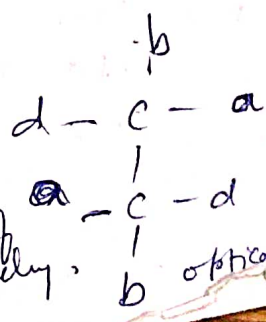 b
d - C - a
a - C - d
b optica